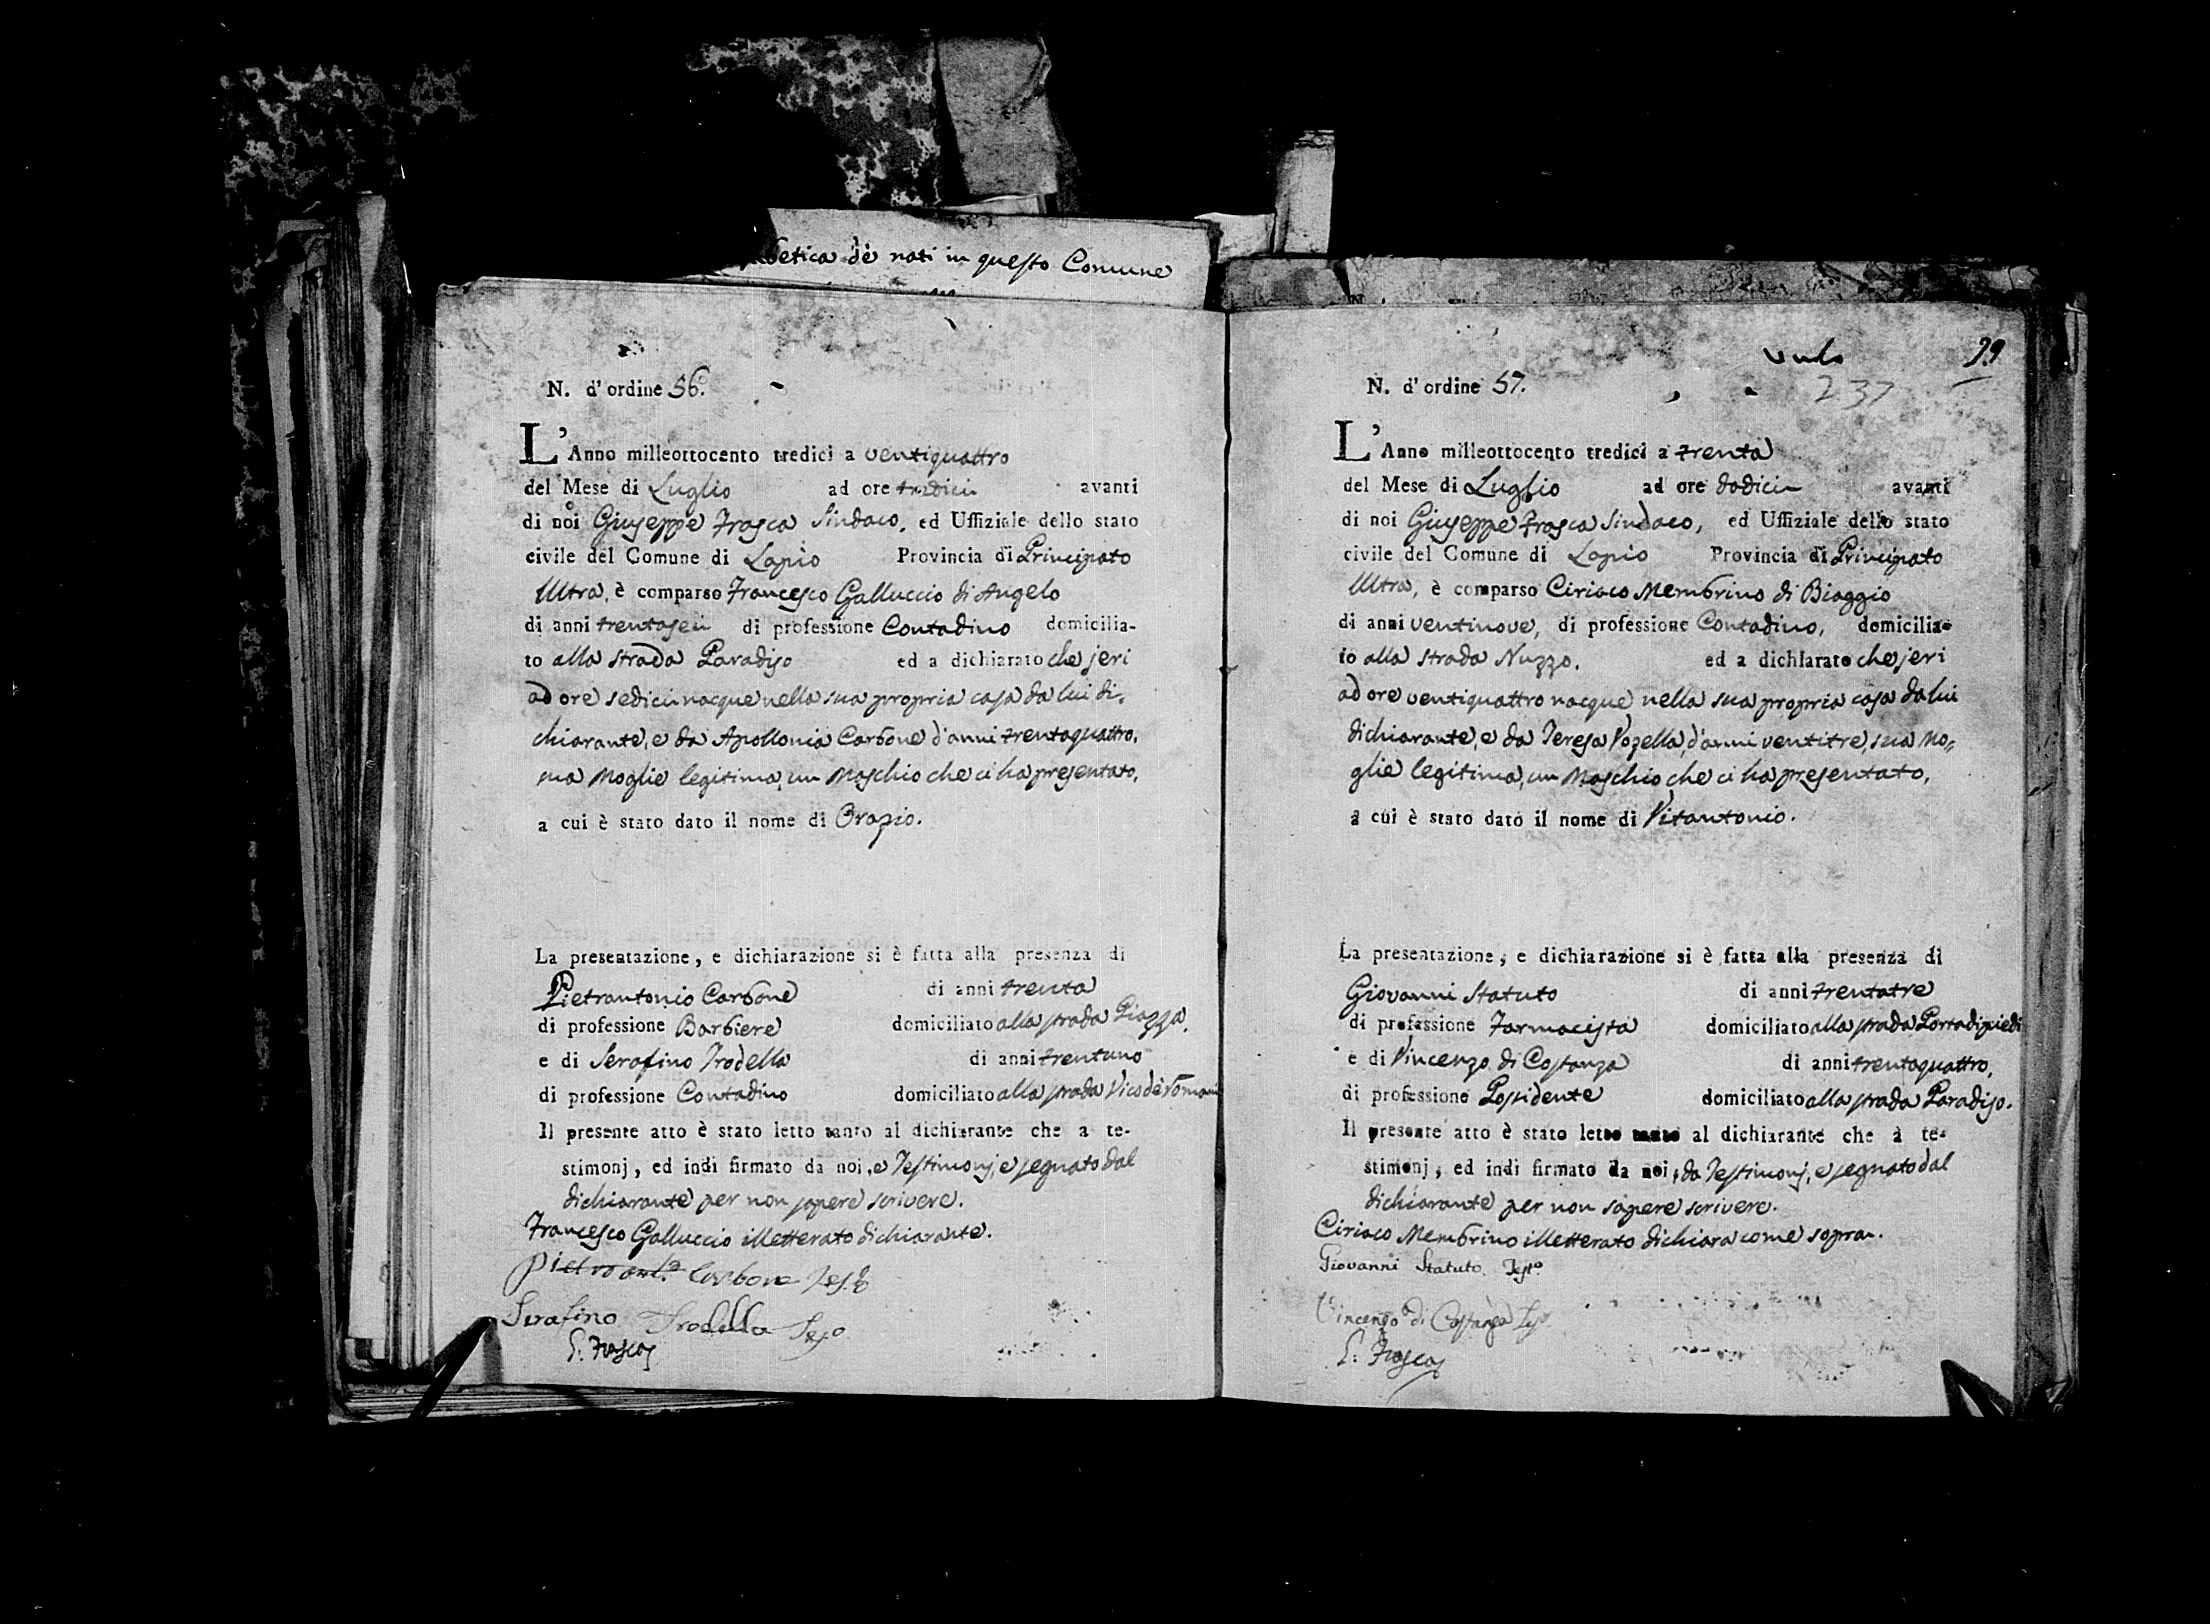 betica dè nati in questo Comune
N. d'ordine 56.
L'Anno milleottocento tredici a ventiquattro
del Mese di Luglio ad ore tredici avanti
di noi Giuseppe Frasca Sindaco, ed Uffiziale dello stato
civile del Comune di Lapio Provincia di Principato
Ultra, è comparso Francesco Galluccio di Angelo
di anni trentasei di professione Contadino domicilia-
to alla strada Paradiso ed a dichiarato che jeri
ad ore sedici nacque nella sua propria casa da lui di-
chiarante, e da Apollonia Carbone d'anni trentaquattro,
sua Moglie legitima, un Maschio che ci ha presentato,
a cui è stato dato il nome di Orazio.
La presentazione, e dichiarazione si è fatta alla presenza di
Pietrantonio Carbone di anni trenta
di professione Barbiere domiciliato alla strada Piazza,
e di Serafino Trodella di anni trentuno
di professione Contadino domiciliato alla strada Vico dè Romani
Il presente atto è stato letto tanto al dichiarante che a te-
stimonj, ed indi firmato da noi, e Testimonj, e segnato dal
dichiarante per non sapere scrivere.
Francesco Galluccio illetterato dichiarante.
Pietro ant.º Carbone Tes.º
Serafino Trodella Teso
G. Frasca
vudo
29
237
N. d'ordine 57.
L'Anno milleottocento tredici a trenta
del Mese di Luglio ad ore dodici avanti
di noi Giuseppe Frasca Sindaco, ed Uffiziale dello stato
civile del Comune di Lapio Provincia di Principato
Ultra, è comparso Ciriaco Membrino di Biaggio
di anni ventinove, di professione Contadino, domicilia-
to alla strada Nuzzo, ed a dichiarato che jeri
ad ore ventiquattro nacque nella sua propria casa da lui
dichiarante, e da Teresa Vozella, d'anni ventitre, sua Mo-
glie legitima, un Maschio che ci ha presentato,
a cui è stato dato il nome di Vitantonio.
La presentazione, e dichiarazione si è fatta alla presenza di
Giovanni Statuto di anni trentatre
di professione Farmacista domiciliato alla strada Portadipiedi
e di Vincenzo di Costanza di anni trentaquattro,
di professione Possidente domiciliato alla strada Paradiso.
Il presente atto è stato letto tanto al dichiarante che a te-
stimonj, ed indi firmato da noi, da Testimonj, e segnato dal
dichiarante per non sapere scrivere.
Ciriaco Membrino illetterato dichiara come sopra.
Giovanni Statuto Testº
Vincenzo di Costanza Tesº
G. Frasca